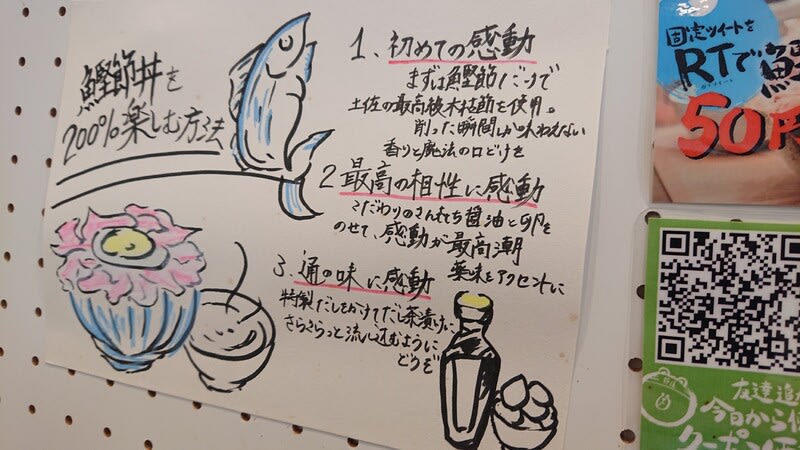 鰹節丼を
200%楽しむ方法
1、初めての感動
まずは鰹節だけで
土佐の最高級本枯節を使用。
削った瞬間しか味わえない
香りと魔法の口どけを
2 最高の相性に感動
こだわりのさしすせそ醤油と卵を
のせて、感動が最高潮
薬味をアクセントに
3、通の味に感動
特製だしをかけてだし茶漬けに
さらさらっと流し込むように
どうぞ
固定ツイートを
RTで鰹
50円
友達追
今日から使
クーポン